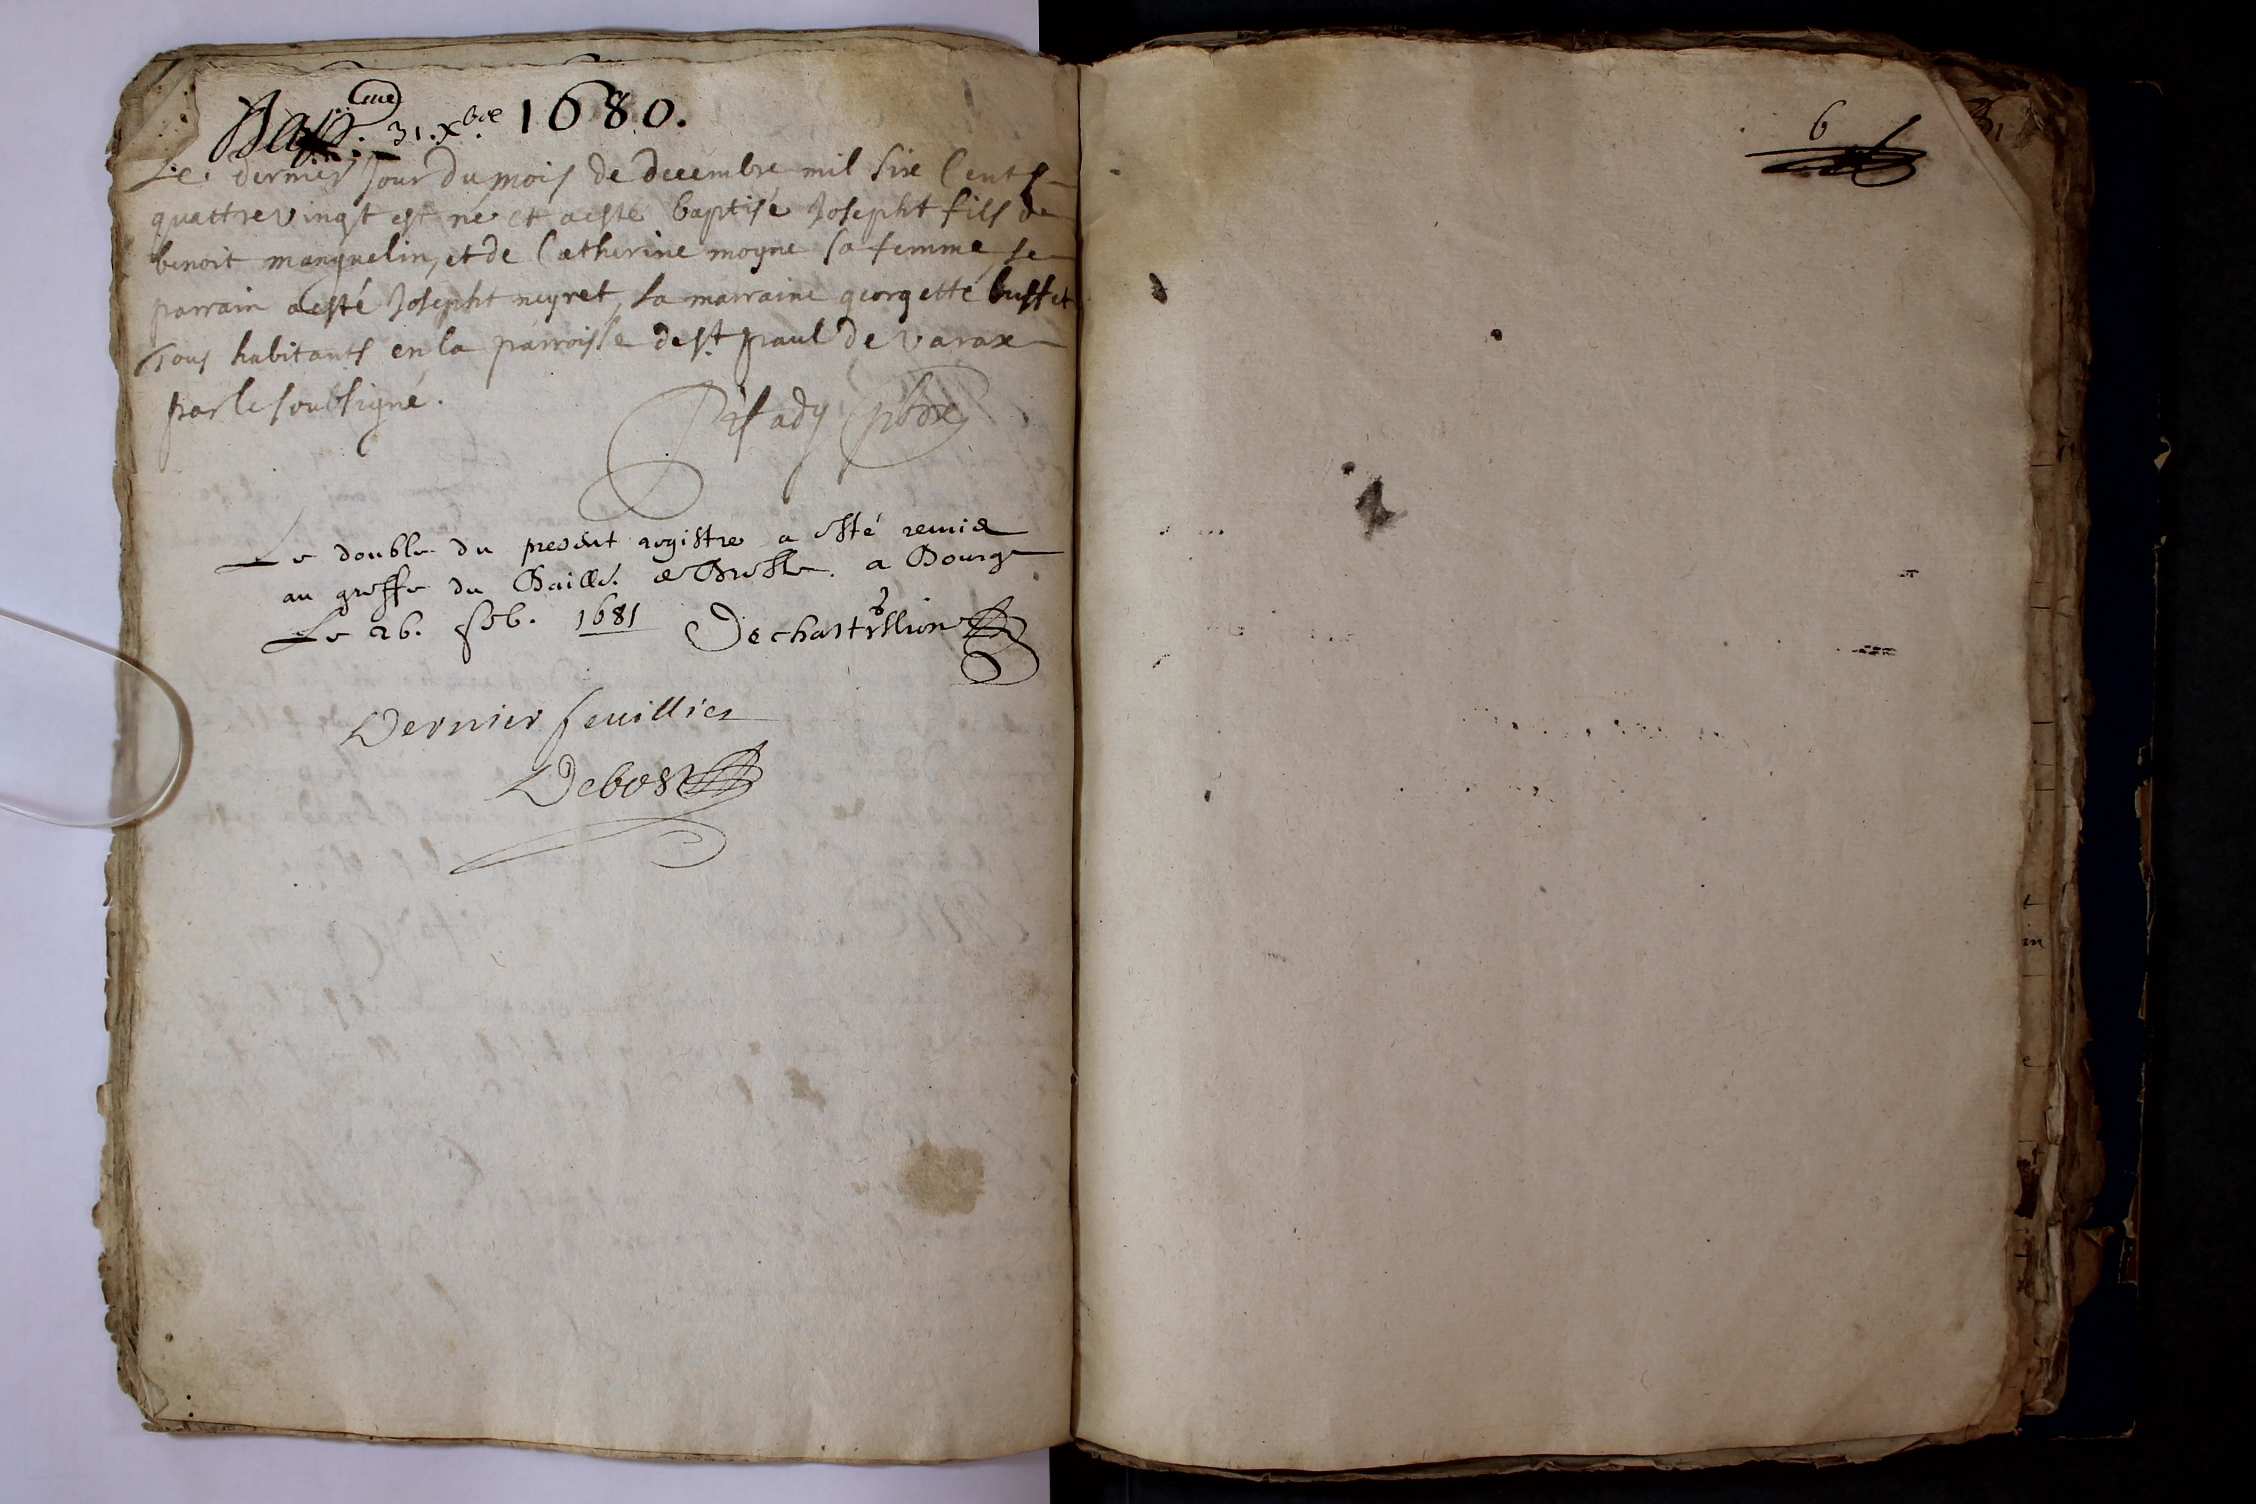 Bap.me 31. Xbre 1680.
Le dernier jour du mois de decembre mil six Cents
quattrevingt est né et a esté baptisé Josepht fils de
benoit manguelin, et de Catherine moyne sa femme, le
parrain a esté Josepht neyret, la marraine georgette buffet
Tous habitants en la parroisse de st paul de varax
par le soubsigné.
pbre
Le double du present registre a esté remis
au greffe du Baill. de Bresse a Bourg
Le 26. feb. 1681 Dechastillion
Dernier feuillies
Debost
6